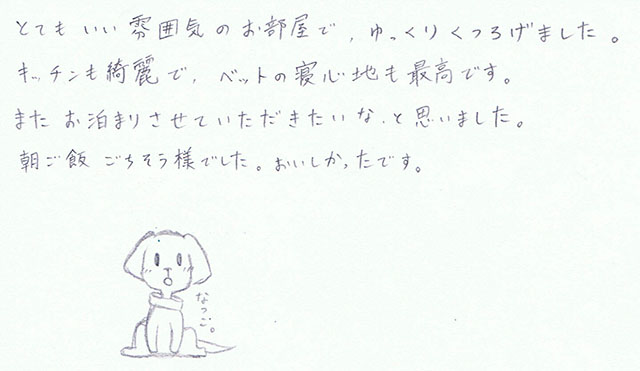 とてもいい雰囲気のお部屋で、ゆっくりくつろげました。
キッチンも綺麗で、ベットの寝心地も最高です。
またお泊まりさせていただきたいな、と思いました。
朝ご飯ごちそう様でした。おいしかったです。
なっご。